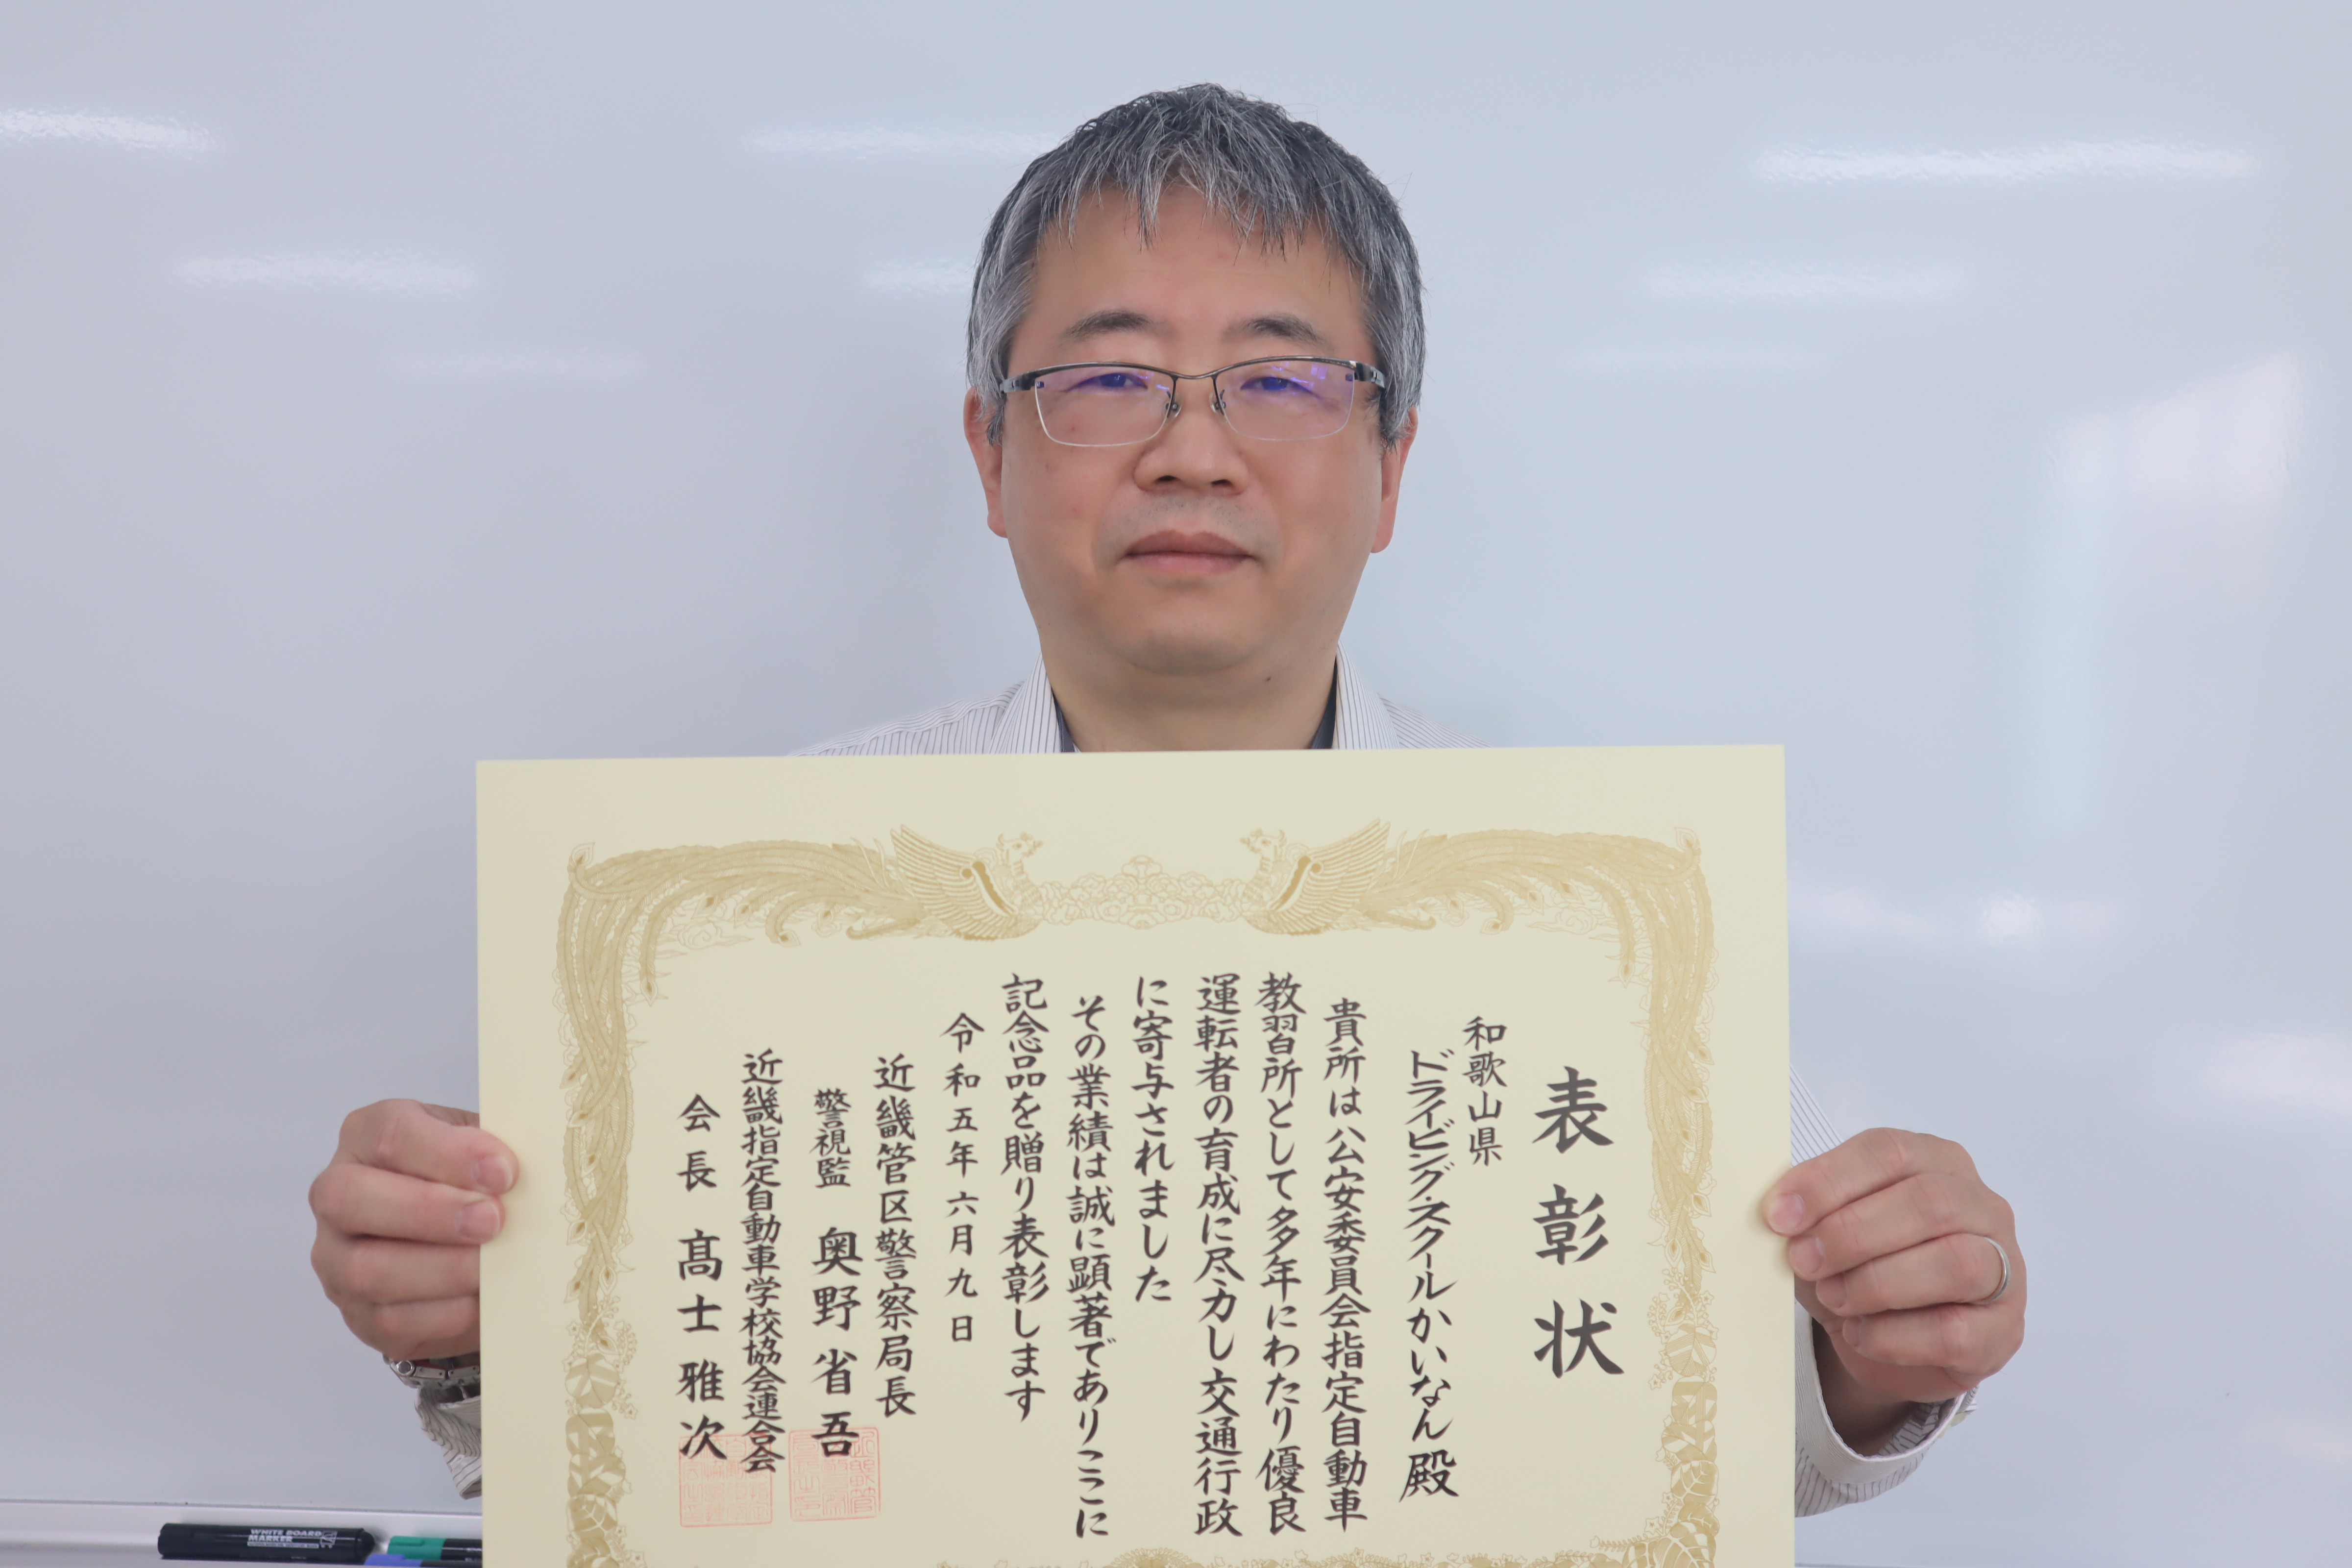 表彰状
和歌山県
ドライビング・スクールかいなん殿
貴所は公安委員会指定自動車
教習所として多年にわたり優良
運転者の育成に尽力し交通行政
に寄与されました
その業績は誠に顕著でありここに
記念品を贈り表彰します
令和五年六月九日
近畿管区警察局長
警視監 奥野省吾
近畿指定自動車学校協会連合会
会長 髙士雅次
WHITE BOARD
MARKER